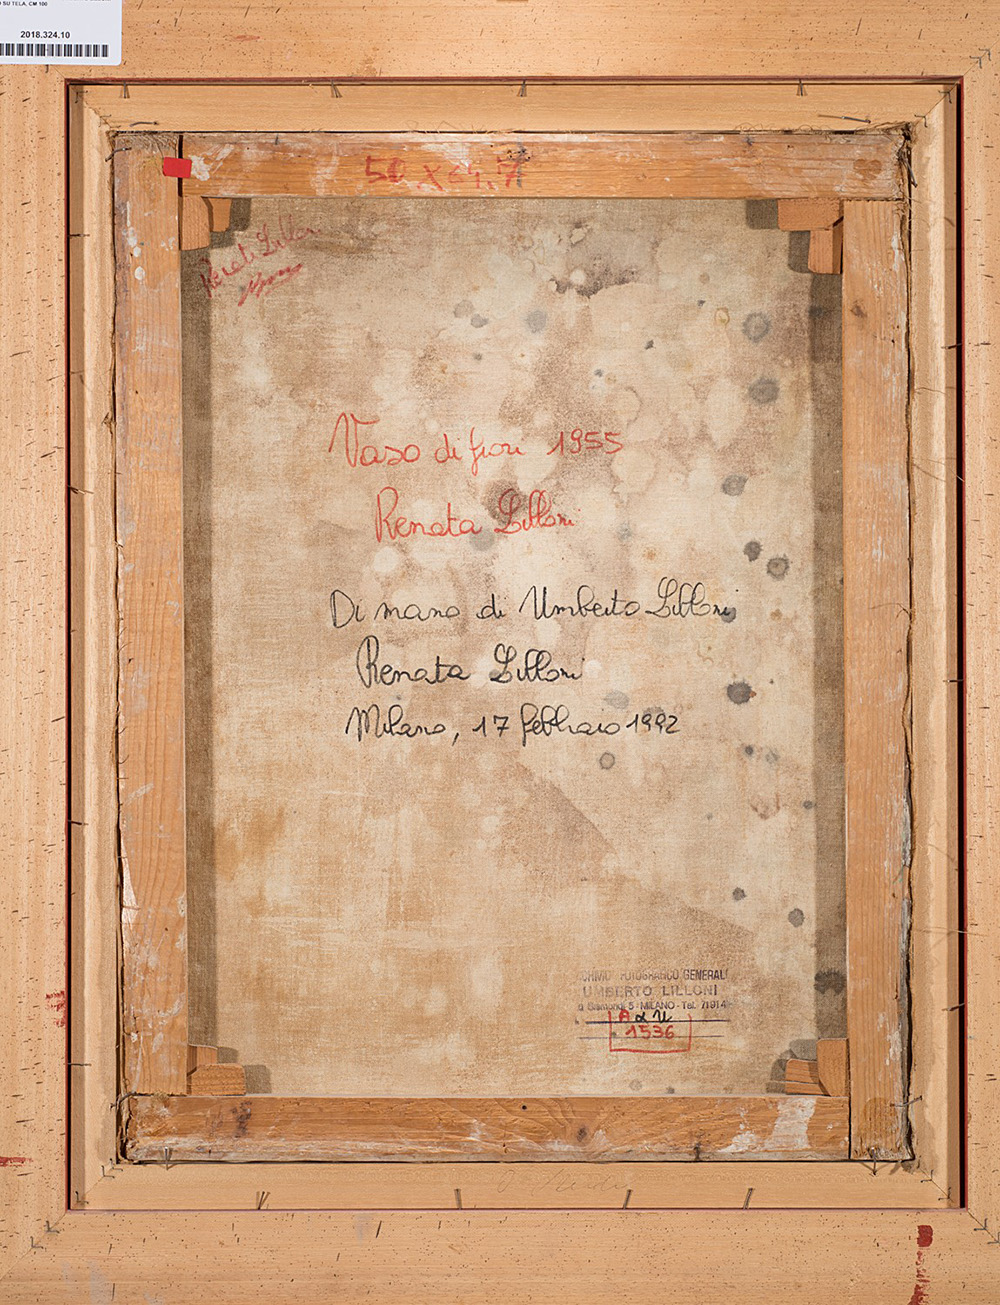 SU TELA, CM 100
2018.324.10
50 x
Renata Lilloni
Vaso di fiori 1955
Renata Lilloni
Di mano di Umberto Lilloni
Renata Lilloni
Milano, 17 febbraio 1992
CHIVIO FOTOGRAFICO GENERALE
UMBERTO LILLONI
5 - MILANO - Tel. 71914
1536